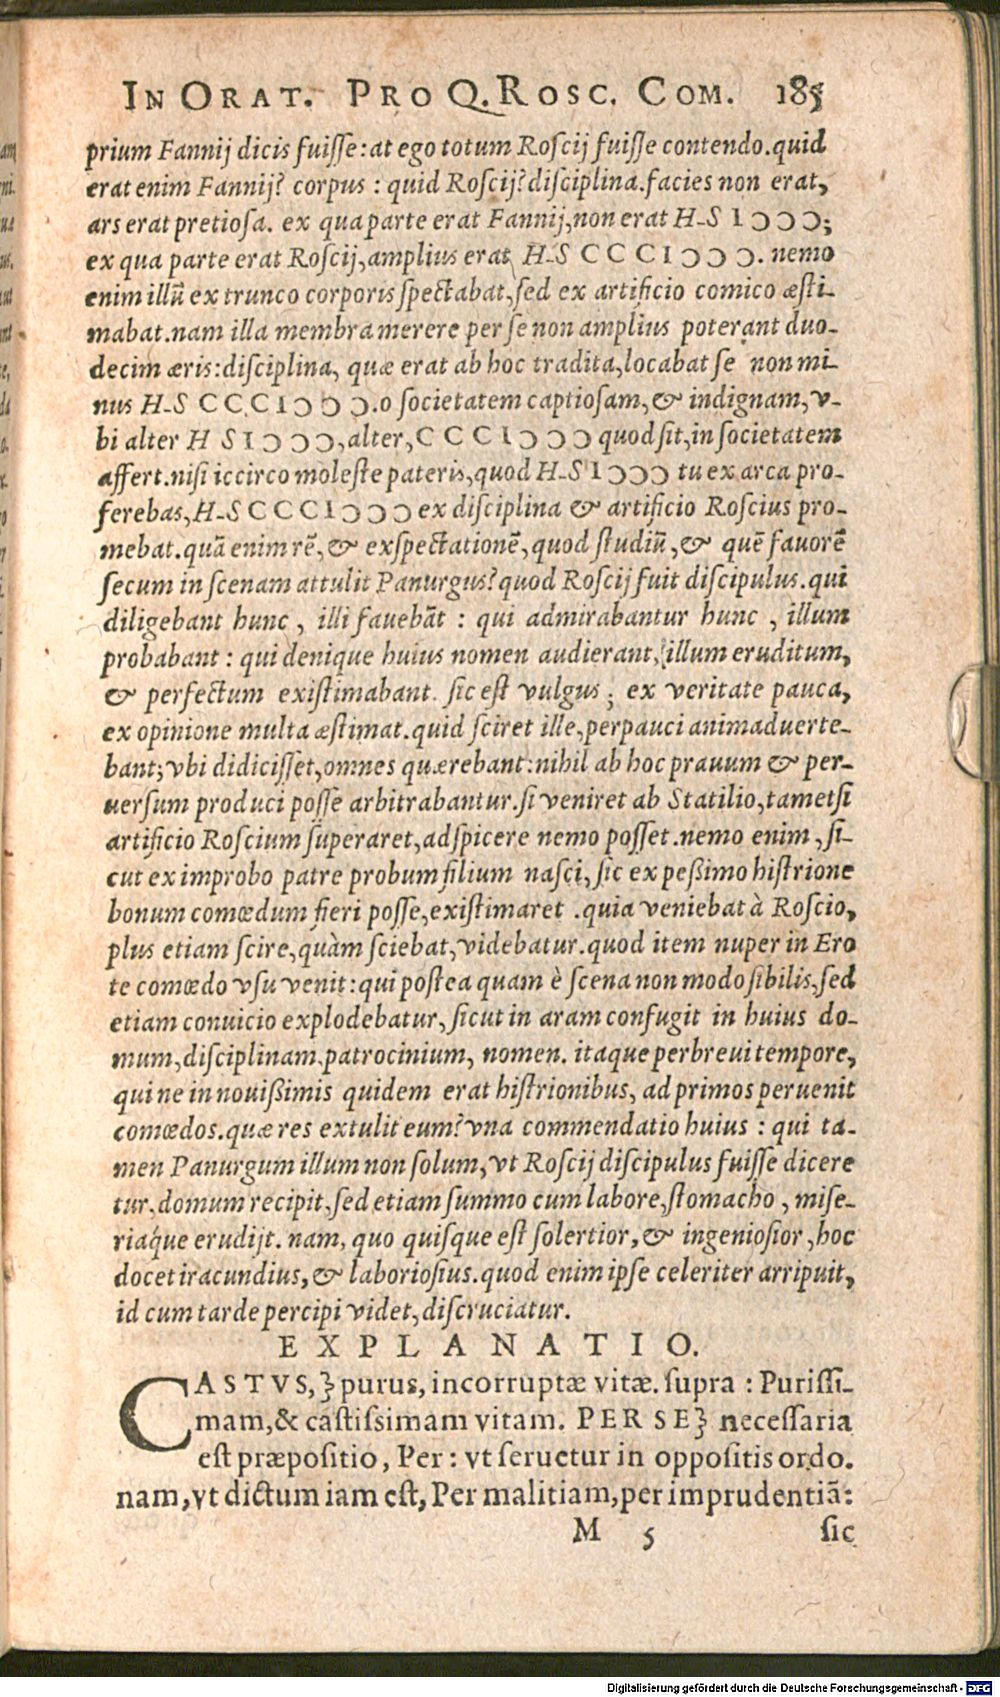 IN ORAT. PRO Q. ROSC. COM. 185
prium Fannij dicis fuiſſe: at ego totum Roſcij fuiſſe contendo. quid
erat enim Fannij? corpus: quid Roſcij? diſciplina. facies non erat,
ars erat pretioſa. ex qua parte erat Fannij, non erat H-S IↃↃↃ;
ex qua parte erat Roſcij, amplius erat H-S CCCIↃↃↃ. nemo
enim illū ex trunco corporis ſpectabat, ſed ex artificio comico æſti-
mabat. nam illa membra merere per ſe non amplius poterant duo-
decim æris: diſciplina, quæ erat ab hoc tradita, locabat ſe non mi-
nus H-S CCCIↃↃↃ. o ſocietatem captioſam, & indignam, v-
bi alter H S IↃↃↃ, alter, CCCIↃↃↃ quod ſit, in ſocietatem
affert. niſi iccirco moleſte pateris, quod H-S IↃↃↃ tu ex arca pro-
ferebas, H-S CCCIↃↃↃ ex diſciplina & artificio Roſcius pro-
mebat. quā enim rē, & exſpectationē, quod ſtudiū, & quē fauorē
ſecum in ſcenam attulit Panurgus? quod Roſcij fuit diſcipulus. qui
diligebant hunc, illi fauebāt: qui admirabantur hunc, illum
probabant: qui denique huius nomen audierant, illum eruditum,
& perfectum exiſtimabant. ſic eſt vulgus; ex veritate pauca,
ex opinione multa æſtimat. quid ſciret ille, perpauci animaduerte-
bant; vbi didiciſſet, omnes quærebant: nihil ab hoc prauum & per-
uerſum produci poſſe arbitrabantur. ſi veniret ab Statilio, tametſi
artificio Roſcium ſuperaret, adſpicere nemo poſſet. nemo enim, ſi-
cut ex improbo patre probum filium naſci, ſic ex peßimo hiſtrione
bonum comœdum fieri poſſe, exiſtimaret. quia veniebat à Roſcio,
plus etiam ſcire, quàm ſciebat, videbatur. quod item nuper in Ero
te comœdo vſu venit: qui poſtea quam è ſcena non modo ſibilis, ſed
etiam conuicio explodebatur, ſicut in aram confugit in huius do-
mum, diſciplinam, patrocinium, nomen. itaque perbreui tempore,
qui ne in nouißimis quidem erat hiſtrionibus, ad primos peruenit
comœdos. quæ res extulit eum? vna commendatio huius: qui ta-
men Panurgum illum non ſolum, vt Roſcij diſcipulus fuiſſe dicere
tur, domum recipit, ſed etiam ſummo cum labore, ſtomacho, miſe-
riáque erudijt. nam, quo quiſque eſt ſolertior, & ingenioſior, hoc
docet iracundius, & laborioſius. quod enim ipſe celeriter arripuit,
id cum tarde percipi videt, diſcruciatur.
EXPLANATIO.
CASTVS, ⁊ purus, incorruptæ vitæ. ſupra: Puriſſi-
mam, & caſtiſsimam vitam. PER SE⁊ neceſſaria
eſt præpoſitio, Per: vt ſeruetur in oppoſitis ordo.
nam, vt dictum iam eſt, Per malitiam, per imprudentiā:
M 5 ſic
Digitalisierung gefördert durch die Deutsche Forschungsgemeinschaft - DFG